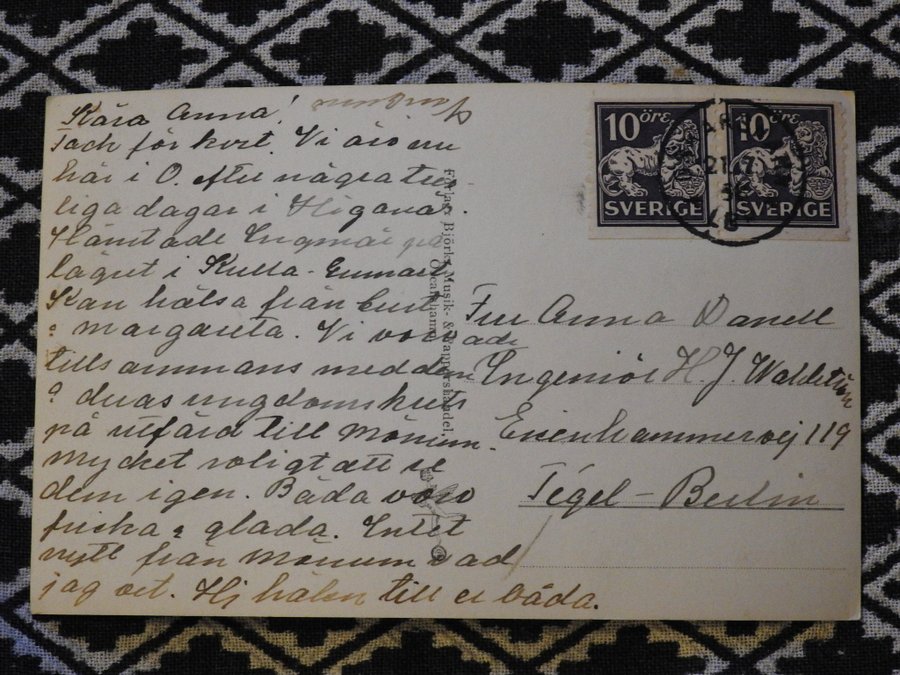 Kära Anna!
Tack för kort. Vi äro nu
här i O. efter några
liga dagar i Höganäs.
Hämtade Ingmar på
lägret i Kulla-Gunnars.
Kan hälsa från
& Margareta. Vi voro
tillsammans med dem
& deras ungdomsklubb
på utfärd till
mycket roligt att se
dem igen. Båda voro
friska & glada. Intet
nytt från vad
jag vet. Hj hälsn till er båda.
Förlag: Björks Musik- & Pappershandel,
Fru Anna Danell
Ingeniör H. J. Waldston
Eisenhammerweg 119
Tegel - Berlin
10 ÖRE
SVERIGE
10 ÖRE
SVERIGE